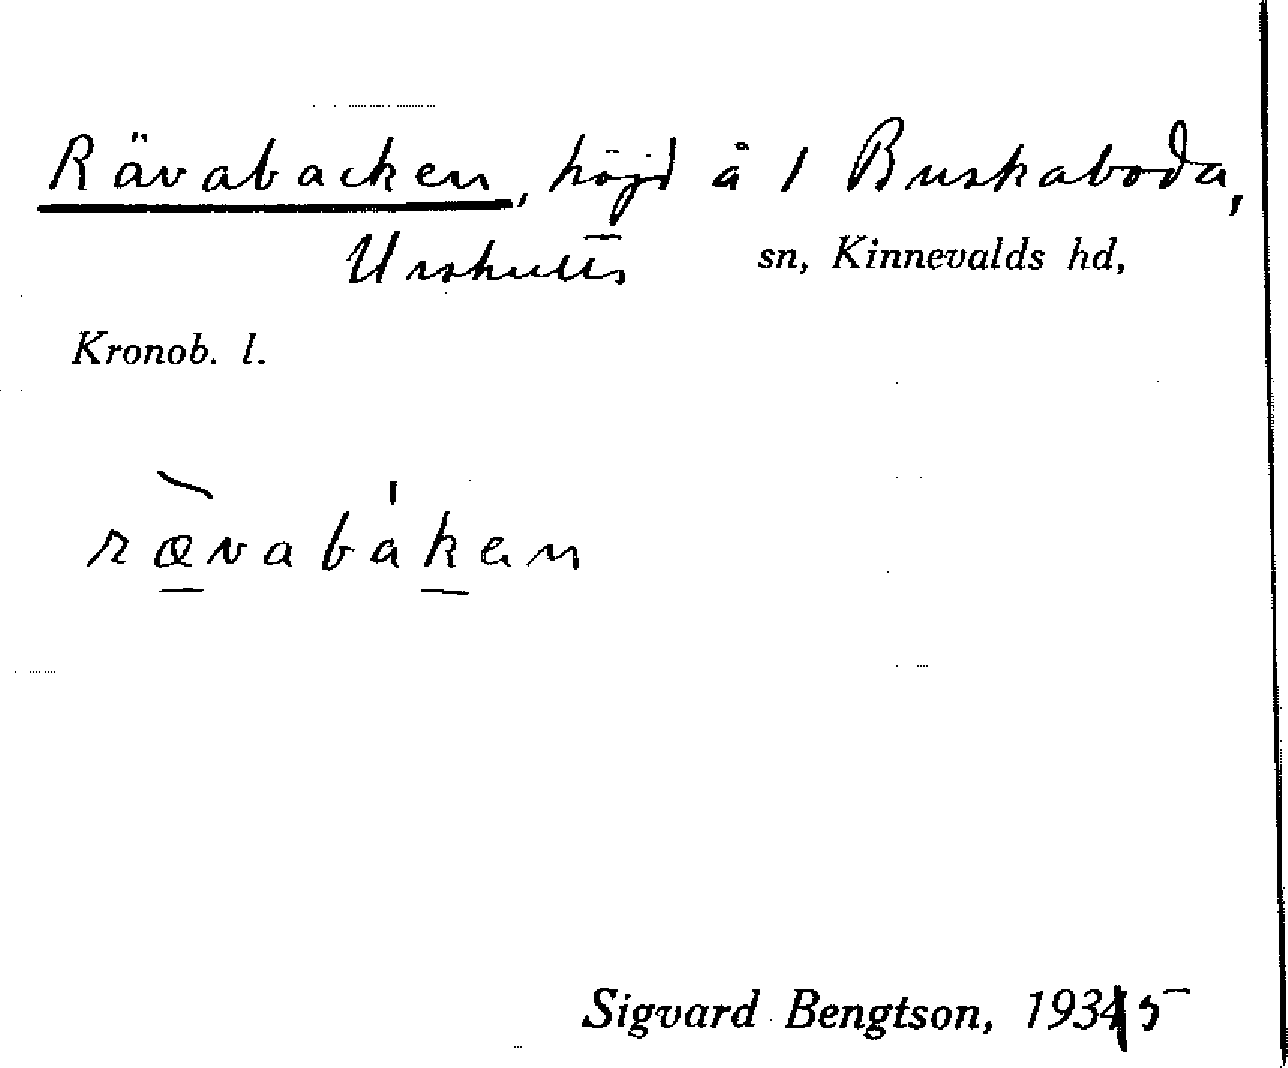 Rävabacken, höjd å 1 Buskaboda,
Urshults sn, Kinnevalds hd,
Kronob. l.
rævabákan
Sigvard Bengtson, 1935